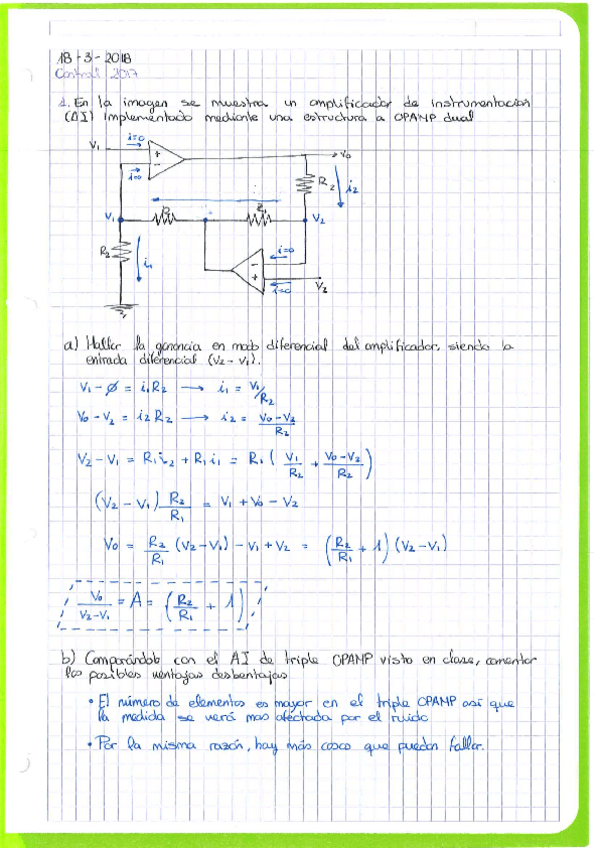 18-3-2018
Control 2017
1. En la imagen se muestra un amplificador de instrumentación
(AI) implementado mediante una estructura a OPAMP dual
V₁ i=0
+
-
i=0
V₀
R₂ i₂
V₁ R₁ R₁ V₂
R₂ i₁
- i=0
+ i=0 V₂
a) Hallar la ganancia en modo diferencial del amplificador, siendo la
entrada diferencial (V₂-V₁).
V₁ - ∅ = i₁R₂ → i₁ = V₁/R₂
V₀ - V₂ = i₂R₂ → i₂ = (V₀-V₂)/R₂
V₂ - V₁ = R₁i₂ + R₁i₁ = R₁ (V₁/R₂ + (V₀-V₂)/R₂)
(V₂ - V₁) R₂/R₁ = V₁ + V₀ - V₂
V₀ = R₂/R₁ (V₂-V₁) - V₁ + V₂ = (R₂/R₁ + 1) (V₂-V₁)
V₀/(V₂-V₁) = A = (R₂/R₁ + 1)
b) Comparándolo con el AI de triple OPAMP visto en clase, comentar
las posibles ventajas desventajas
• El número de elementos es mayor en el triple OPAMP así que
la medida se verá mas afectada por el ruido
• Por la misma razón, hay más cosas que puedan fallar.